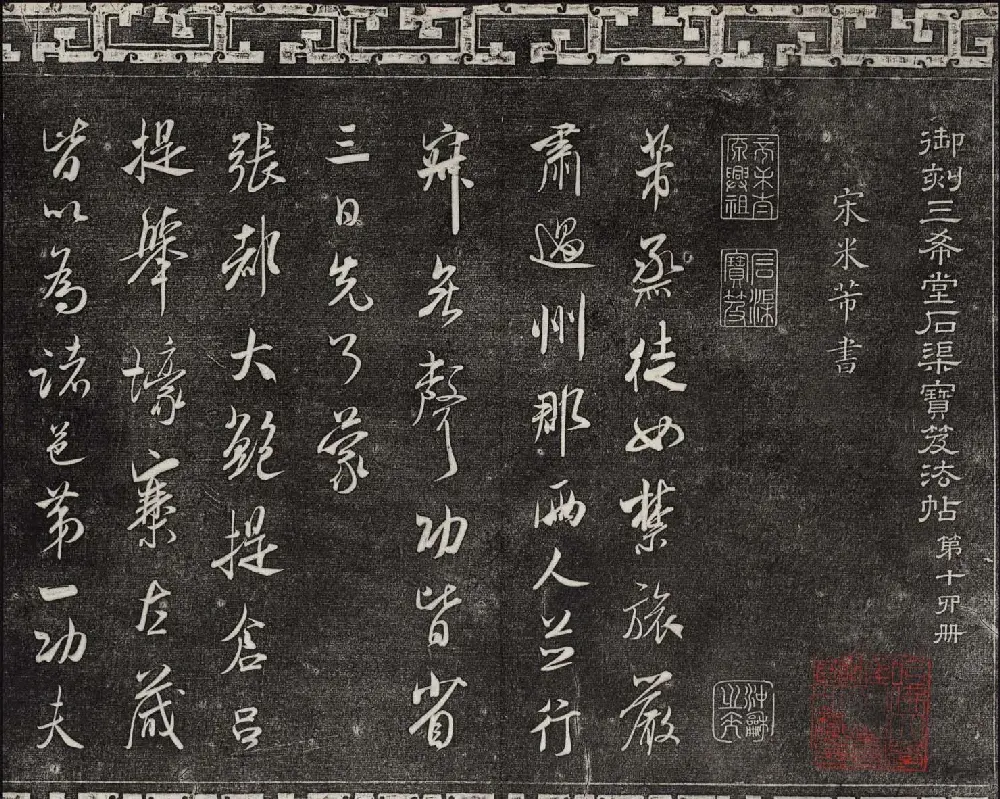 御刻三希堂石渠寶笈法帖 第十四册
宋米芾書
石渠寶笈
芾烝徒如禁旅嚴
肅過州郡兩人並行
寂無聲功皆省
三日先了蒙
張都大鮑提倉呂
提舉壕寨左藏
皆以為諸邑第一功夫